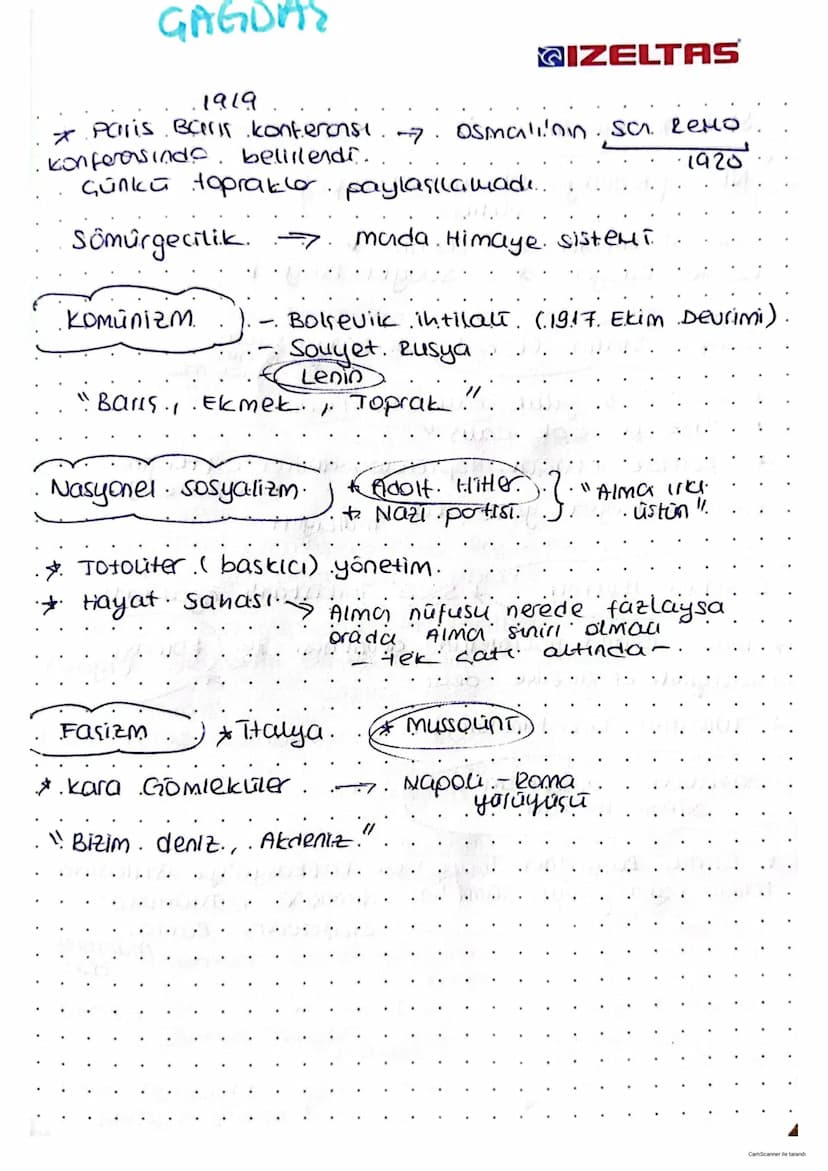 ÇAĞDAŞ
IZELTAS
1919
* Paris Barış konferansı → Osmanlı'nın San Remo
konferasında belirlendi. 1920
Çünkü topraklar paylaşılamadı.
Sömürgecilik ⇒ manda Himaye sistemi
Komünizm - Bolşevik ihtilali (1917 Ekim Devrimi)
- Sovyet Rusya
- Lenin
"Barış, Ekmek, Toprak"
Nasyonel sosyalizm * Adolf Hitler } "Alman ırkı
* Nazi partisi üstün"
* Totoliter (baskıcı) yönetim.
* Hayat Sahası → Alman nüfusu nerede fazlaysa
orada Alman sınırı olmalı
- tek çatı altında -
Faşizm * İtalya * Mussolini
* Kara Gömlekliler → Napoli - Roma
yürüyüşü
"Bizim deniz, Akdeniz"
CamScanner ile tarandı